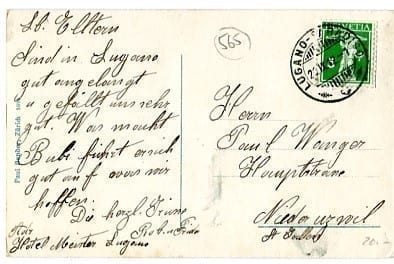 Lb. Eltern
Sind in Lugano
gut angelangt
u gefällt uns sehr
gut. Was macht
Bubi führt er sich
gut auf was wir
hoffen.
Die herzl. Grüsse
Rob u Frieda
Adr
Hotel Meister Lugano
Paul Bender, Zürich
565
LUGANO
HELVETIA
5
Herrn
Paul Wenger
Hauptstrasse
Niederuzwil
St Gallen